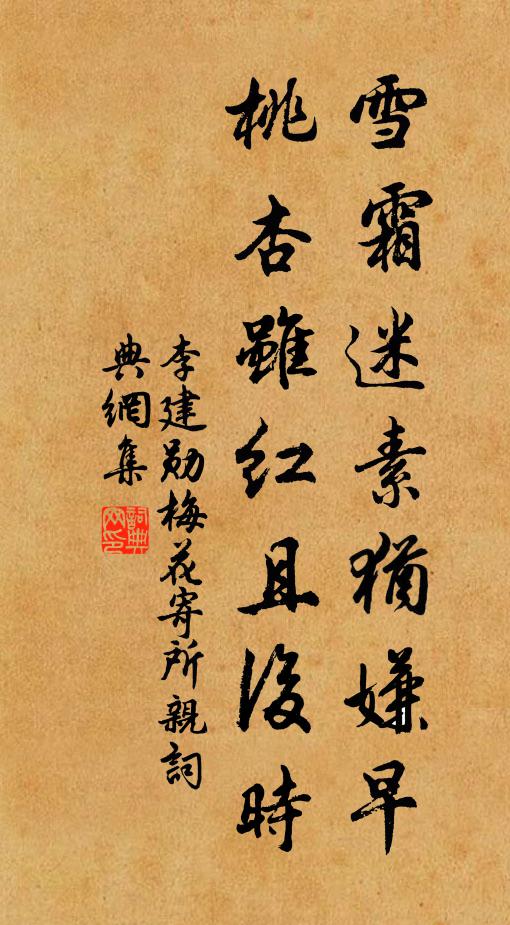 雪霜迷素猶嫌早
桃杏雖紅且後時
李建勛梅花寄所親詞
典網集
詞典網印